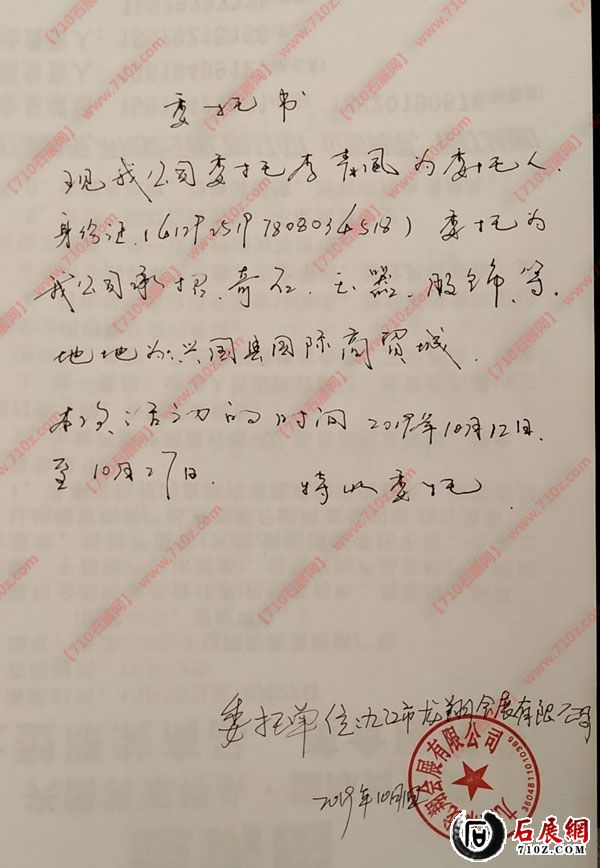 委托书
现我公司委托李 风为委托人.
身份证.(412925197808034518) 委托为
我公司承招.奇石.玉器.服饰.等.
地地为:兴国县国际商贸城.
本次活动的时间 2019年10月12日.
至10月27日. 特此委托.
委托单位:九江市龙翔会展有限公司
2019年10月
会展有限公司
3604811010365
【710石展网】www.710z.com
石展网
710Z.COM